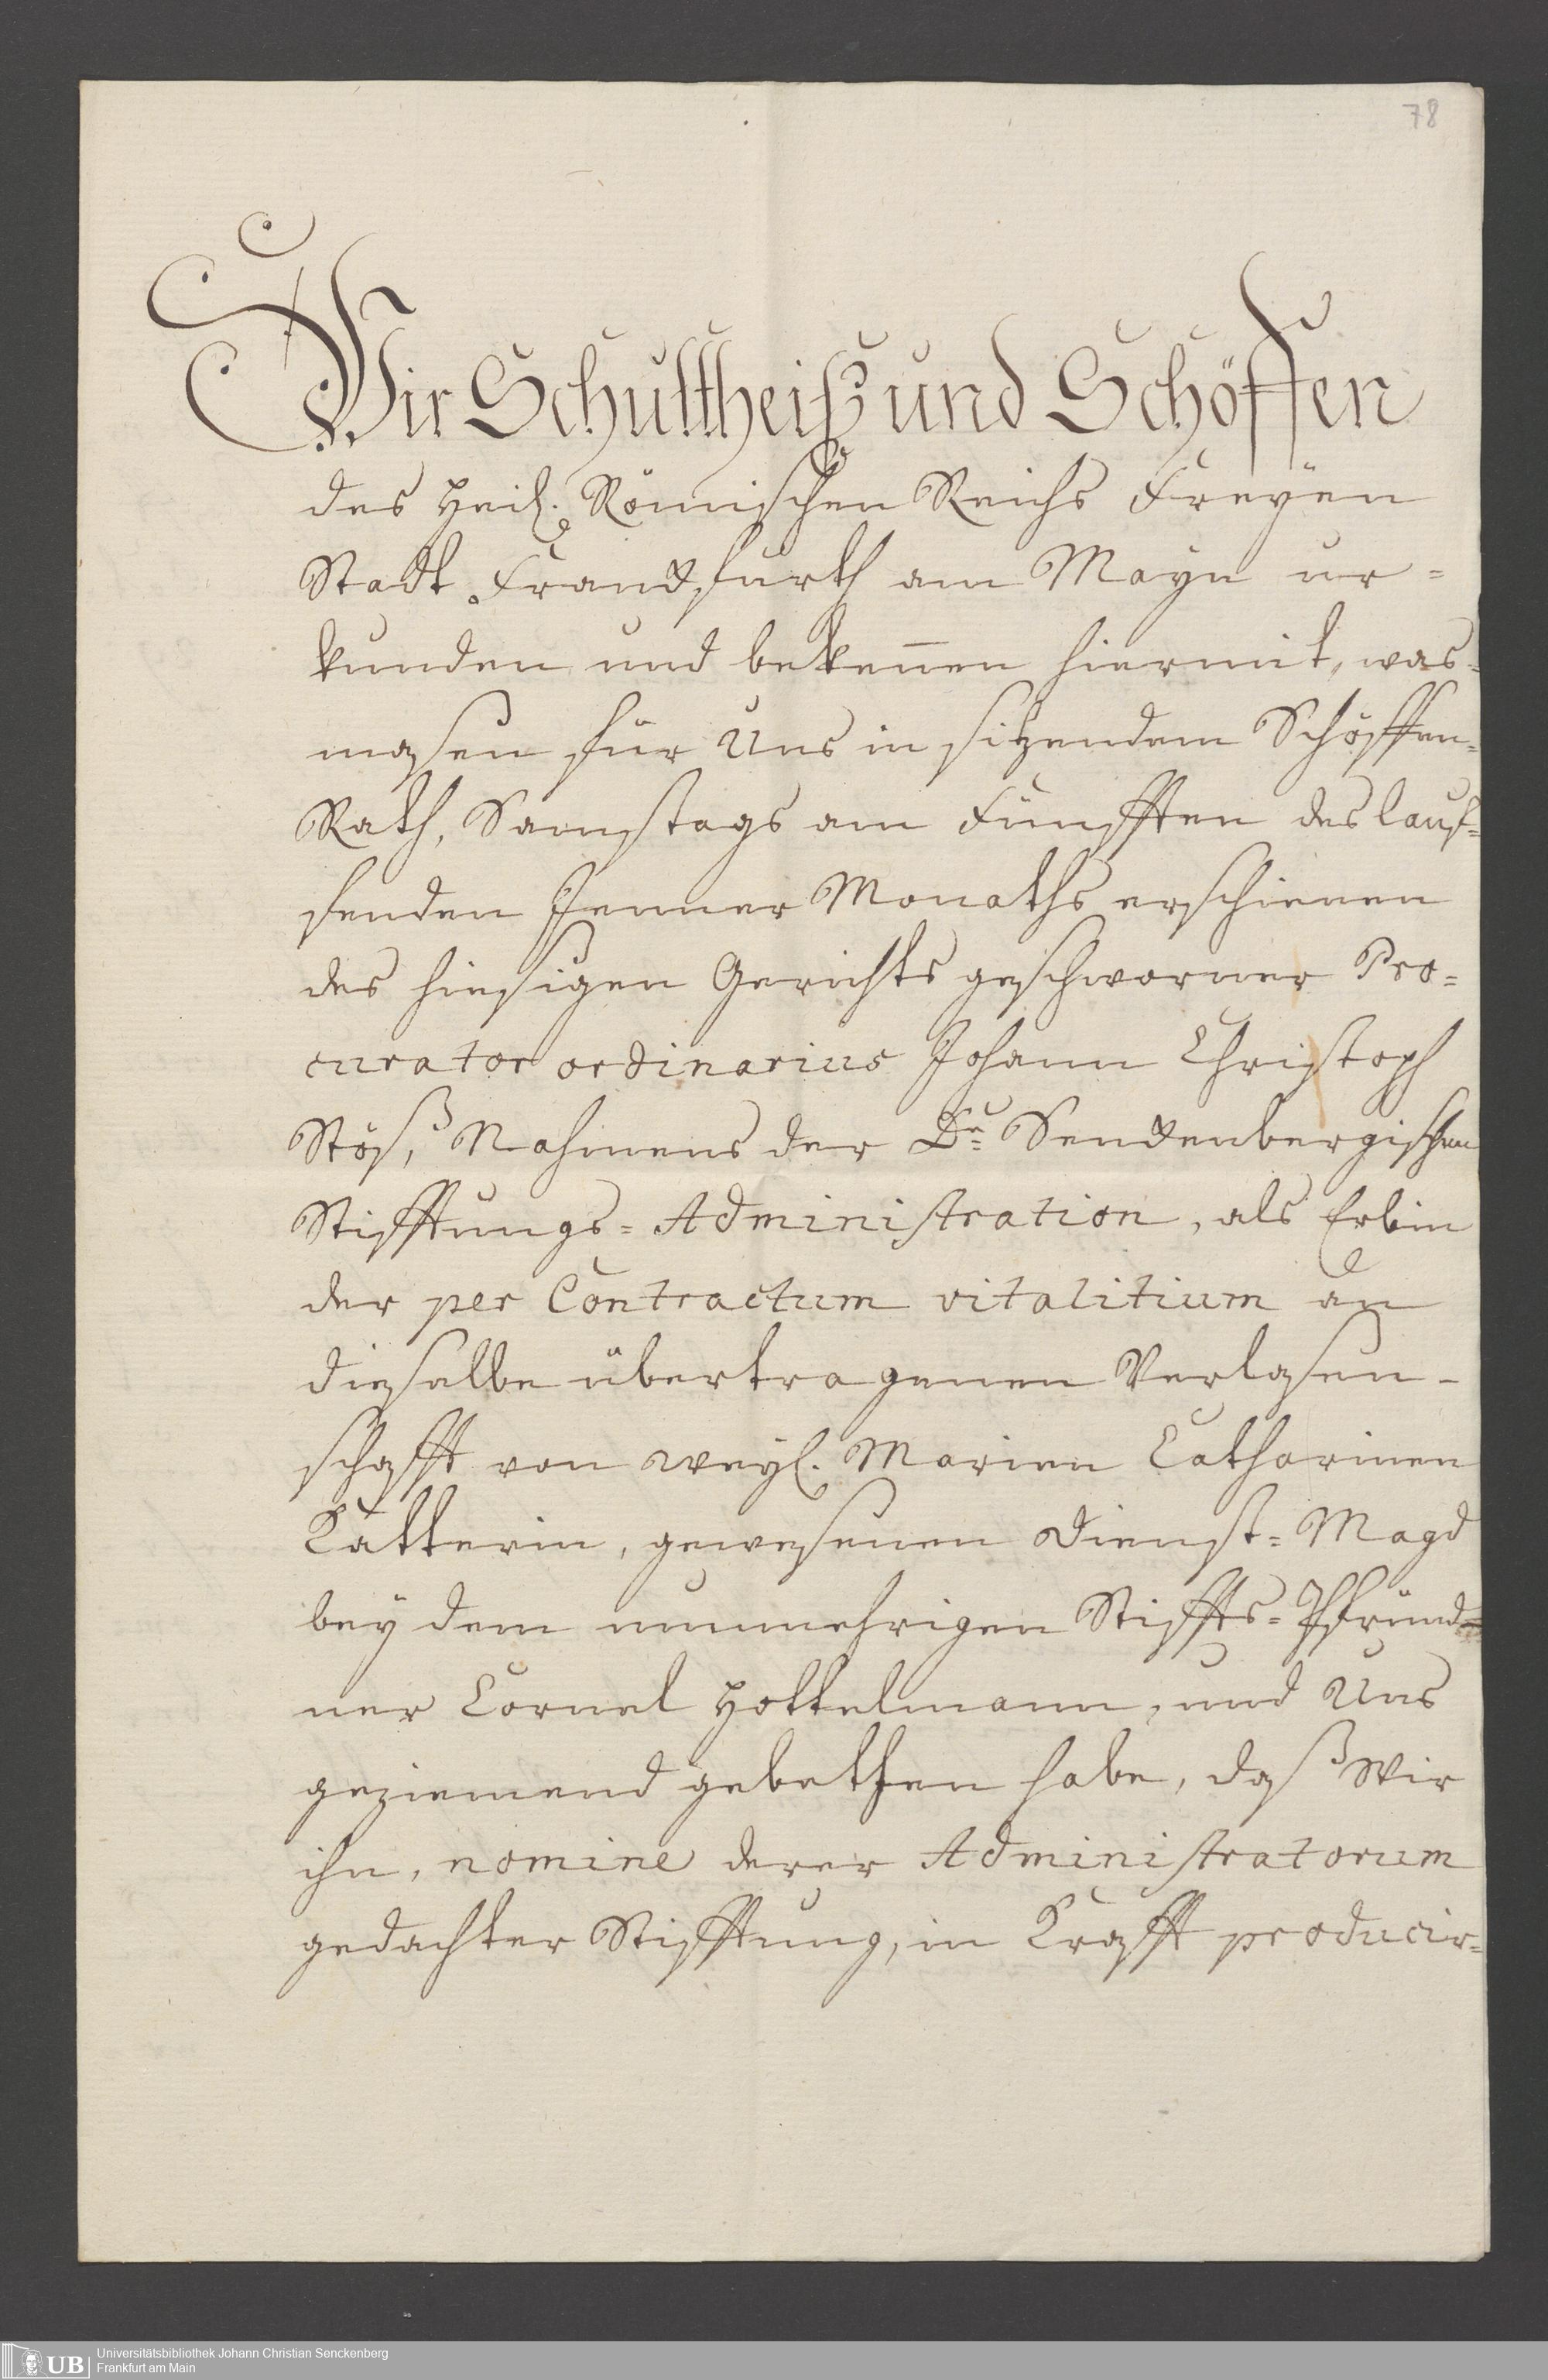 78
Wir Schultheiß und Schöffen
des Heil. Römischen Reichs Freÿen
Stadt Franckfurth am Maÿn ur=
kunden und bekennen hiermit, was=
masen für Uns in sitzendem Schöffen=
Rath, Samstags am Fünfften des lauf=
fenden Jenner Monaths erschienen
des hiesigen Gerichts geschworner Pro=
curator ordinarius Johann Christoph
Stöß, Nahmens der Dr. Senckenbergischen
Stifftungs=Administration, als Erbin
der per Contractum vitalitium an
dieselbe übertragenen Verlasen-
schafft von weyl. Marien Catharinen
Katterin, gewesenen Dienst=Magd
beÿ dem nunmehrigen Stiffts=Pfründ=
ner Cornel Hottelmann, und Uns
geziemend gebethen habe, daß Wir
ihn, nomine derer Administratorum
gedachter Stifftung, in Krafft producir=
UB
Universitätsbibliothek Johann Christian Senckenberg
Frankfurt am Main